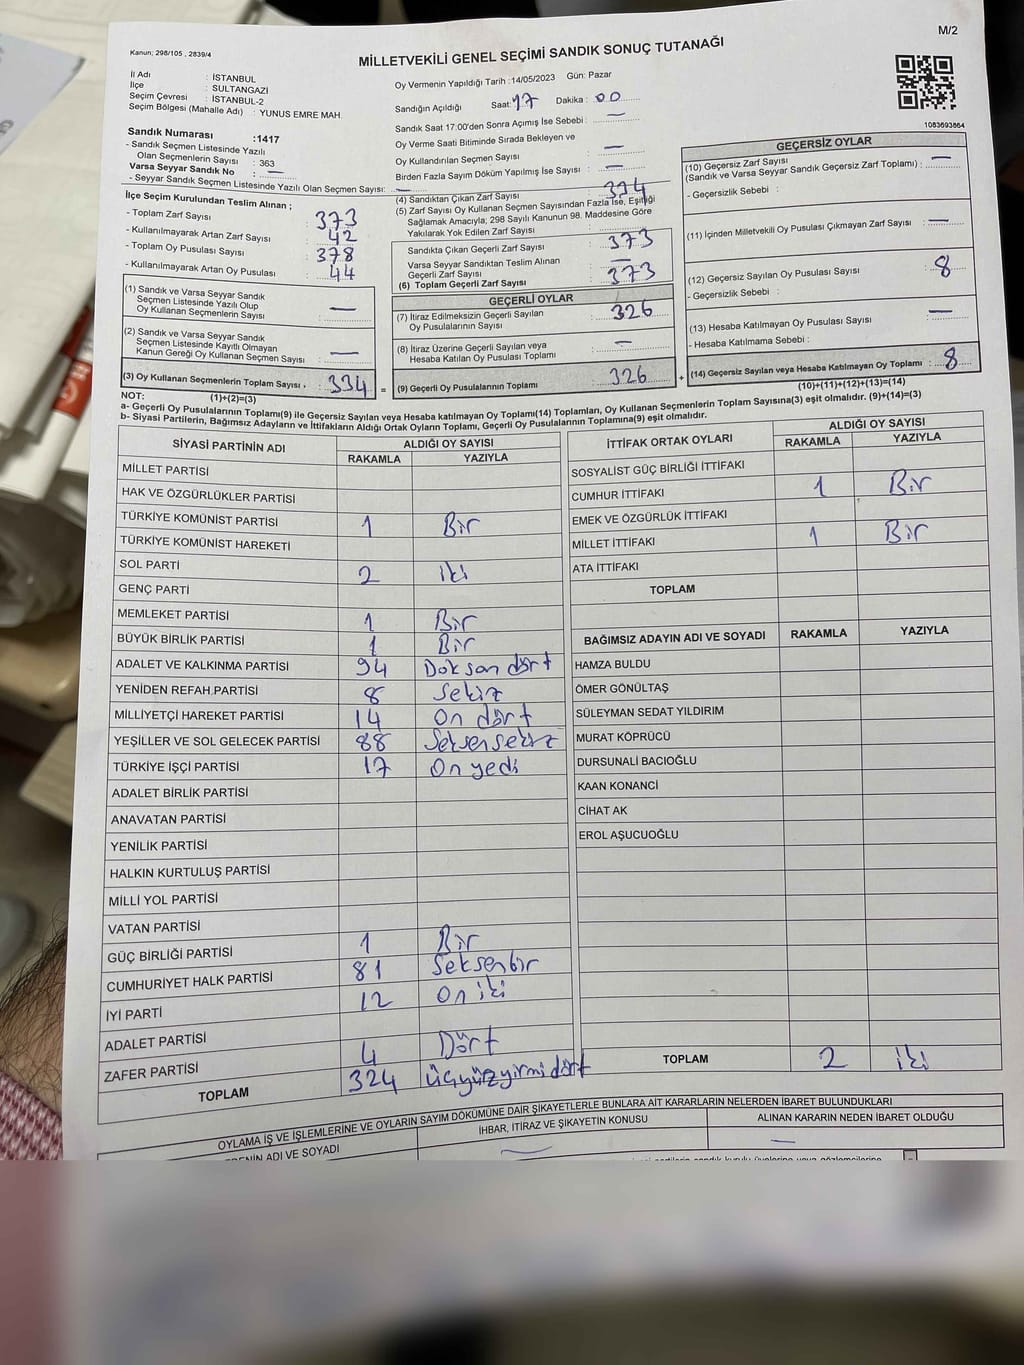 M/2
Kanun; 298/105 , 2839/4
MİLLETVEKİLİ GENEL SEÇİMİ SANDIK SONUÇ TUTANAĞI
İl Adı : İSTANBUL
İlçe : SULTANGAZİ
Seçim Çevresi : İSTANBUL-2
Seçim Bölgesi (Mahalle Adı) : YUNUS EMRE MAH.
Sandık Numarası :1417
- Sandık Seçmen Listesinde Yazılı
Olan Seçmenlerin Sayısı : 363
Varsa Seyyar Sandık No : —
- Seyyar Sandık Seçmen Listesinde Yazılı Olan Seçmen Sayısı: —
Oy Vermenin Yapıldığı Tarih :14/05/2023 Gün: Pazar
Sandığın Açıldığı Saat: 17 Dakika : 00
Sandık Saat 17:00'den Sonra Açımış İse Sebebi : —
Oy Verme Saati Bitiminde Sırada Bekleyen ve
Oy Kullandırılan Seçmen Sayısı —
Birden Fazla Sayım Döküm Yapılmış İse Sayısı : —
1083693864
İlçe Seçim Kurulundan Teslim Alınan ;
- Toplam Zarf Sayısı : 373
- Kullanılmayarak Artan Zarf Sayısı : 42
- Toplam Oy Pusulası Sayısı : 378
- Kullanılmayarak Artan Oy Pusulası : 44
(1) Sandık ve Varsa Seyyar Sandık
Seçmen Listesinde Yazılı Olup
Oy Kullanan Seçmenlerin Sayısı : —
(2) Sandık ve Varsa Seyyar Sandık
Seçmen Listesinde Kayıtlı Olmayan
Kanun Gereği Oy Kullanan Seçmen Sayısı : —
(3) Oy Kullanan Seçmenlerin Toplam Sayısı : 334 =
(1)+(2)=(3)
(4) Sandıktan Çıkan Zarf Sayısı :
(5) Zarf Sayısı Oy Kullanan Seçmen Sayısından Fazla İse, Eşitliği
Sağlamak Amacıyla; 298 Sayılı Kanunun 98. Maddesine Göre
Yakılarak Yok Edilen Zarf Sayısı :
Sandıkta Çıkan Geçerli Zarf Sayısı : 373
Varsa Seyyar Sandıktan Teslim Alınan
Geçerli Zarf Sayısı : —
(6) Toplam Geçerli Zarf Sayısı : 373
GEÇERLİ OYLAR
(7) İtiraz Edilmeksizin Geçerli Sayılan
Oy Pusulalarının Sayısı : 326
(8) İtiraz Üzerine Geçerli Sayılan veya
Hesaba Katılan Oy Pusulası Toplamı : —
(9) Geçerli Oy Pusulalarının Toplamı : 326 +
GEÇERSİZ OYLAR
(10) Geçersiz Zarf Sayısı
(Sandık ve Varsa Seyyar Sandık Geçersiz Zarf Toplamı) : —
- Geçersizlik Sebebi :
(11) İçinden Milletvekili Oy Pusulası Çıkmayan Zarf Sayısı : —
(12) Geçersiz Sayılan Oy Pusulası Sayısı : 8
- Geçersizlik Sebebi :
(13) Hesaba Katılmayan Oy Pusulası Sayısı : —
- Hesaba Katılmama Sebebi :
(14) Geçersiz Sayılan veya Hesaba Katılmayan Oy Toplamı : 8
(10)+(11)+(12)+(13)=(14)
NOT:
a- Geçerli Oy Pusulalarının Toplamı(9) ile Geçersiz Sayılan veya Hesaba katılmayan Oy Toplamı(14) Toplamları, Oy Kullanan Seçmenlerin Toplam Sayısına(3) eşit olmalıdır. (9)+(14)=(3)
b- Siyasi Partilerin, Bağımsız Adayların ve İttifakların Aldığı Ortak Oyların Toplamı, Geçerli Oy Pusulalarının Toplamına(9) eşit olmalıdır.
SİYASİ PARTİNİN ADI ALDIĞI OY SAYISI
RAKAMLA YAZIYLA
MİLLET PARTİSİ
HAK VE ÖZGÜRLÜKLER PARTİSİ
TÜRKİYE KOMÜNİST PARTİSİ 1 Bir
TÜRKİYE KOMÜNİST HAREKETİ
SOL PARTİ 2 iki
GENÇ PARTİ
MEMLEKET PARTİSİ 1 Bir
BÜYÜK BİRLİK PARTİSİ 1 Bir
ADALET VE KALKINMA PARTİSİ 94 Doksan dört
YENİDEN REFAH PARTİSİ 8 Sekiz
MİLLİYETÇİ HAREKET PARTİSİ 14 On dört
YEŞİLLER VE SOL GELECEK PARTİSİ 88 Seksen sekiz
TÜRKİYE İŞÇİ PARTİSİ 17 On yedi
ADALET BİRLİK PARTİSİ
ANAVATAN PARTİSİ
YENİLİK PARTİSİ
HALKIN KURTULUŞ PARTİSİ
MİLLİ YOL PARTİSİ
VATAN PARTİSİ
GÜÇ BİRLİĞİ PARTİSİ 1 Bir
CUMHURİYET HALK PARTİSİ 81 Seksenbir
İYİ PARTİ 12 On iki
ADALET PARTİSİ
ZAFER PARTİSİ 4 Dört
TOPLAM 324 Üçyüzyirmi dört
İTTİFAK ORTAK OYLARI ALDIĞI OY SAYISI
RAKAMLA YAZIYLA
SOSYALİST GÜÇ BİRLİĞİ İTTİFAKI
CUMHUR İTTİFAKI 1 Bir
EMEK VE ÖZGÜRLÜK İTTİFAKI
MİLLET İTTİFAKI 1 Bir
ATA İTTİFAKI
TOPLAM
BAĞIMSIZ ADAYIN ADI VE SOYADI RAKAMLA YAZIYLA
HAMZA BULDU
ÖMER GÖNÜLTAŞ
SÜLEYMAN SEDAT YILDIRIM
MURAT KÖPRÜCÜ
DURSUNALİ BACIOĞLU
KAAN KONANCİ
CİHAT AK
EROL AŞUCUOĞLU
TOPLAM 2 iki
OYLAMA İŞ VE İŞLEMLERİNE VE OYLARIN SAYIM DÖKÜMÜNE DAİR ŞİKAYETLERLE BUNLARA AİT KARARLARIN NELERDEN İBARET BULUNDUKLARI
ADI VE SOYADI İHBAR, İTİRAZ VE ŞİKAYETİN KONUSU ALINAN KARARIN NEDEN İBARET OLDUĞU
— —